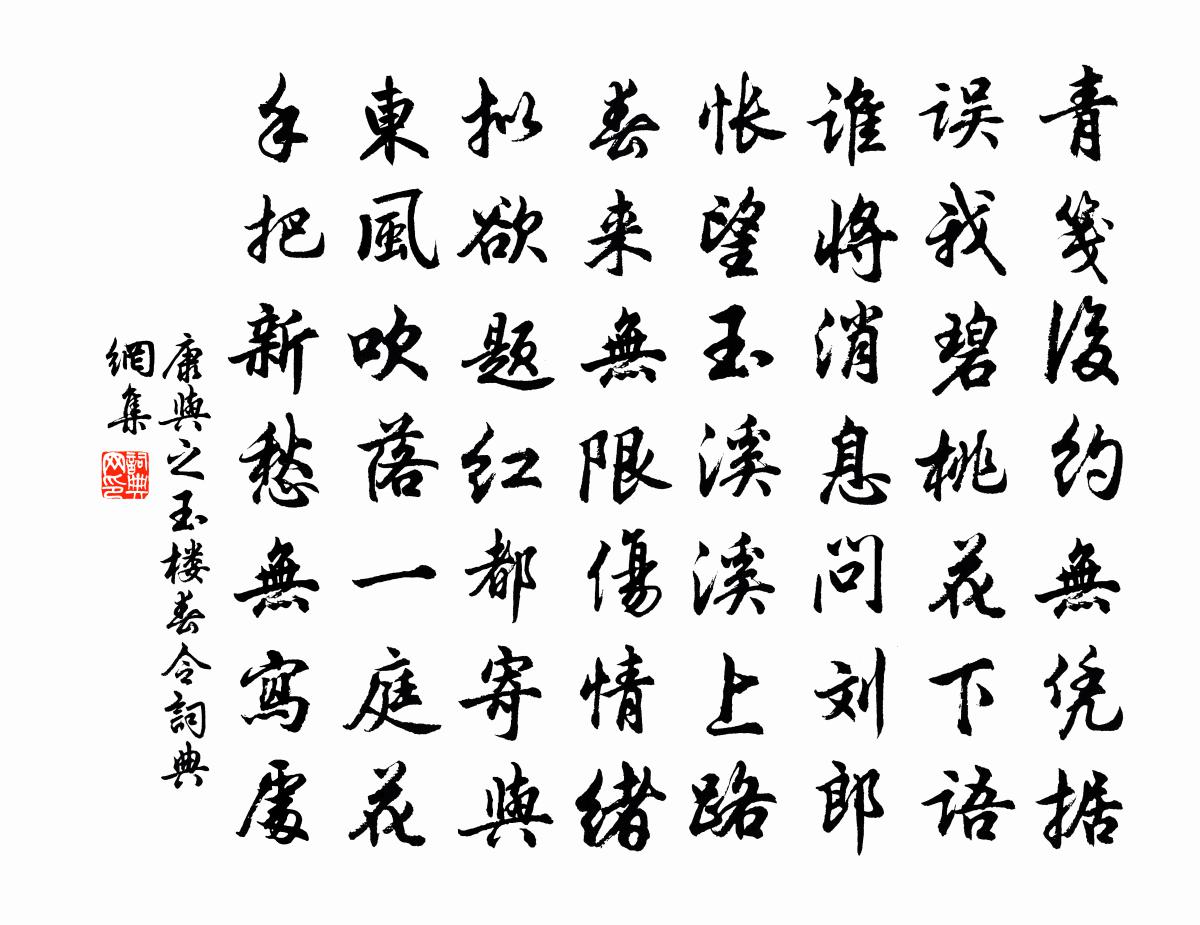 青笺後约無凭据
误我碧桃花下语
谁将消息问刘郎
怅望玉溪溪上路
春来無限傷情緒
拟欲题红都寄與
東風吹落一庭花
手把新愁無寫處
康與之玉楼春令詞典
網集
詞典网